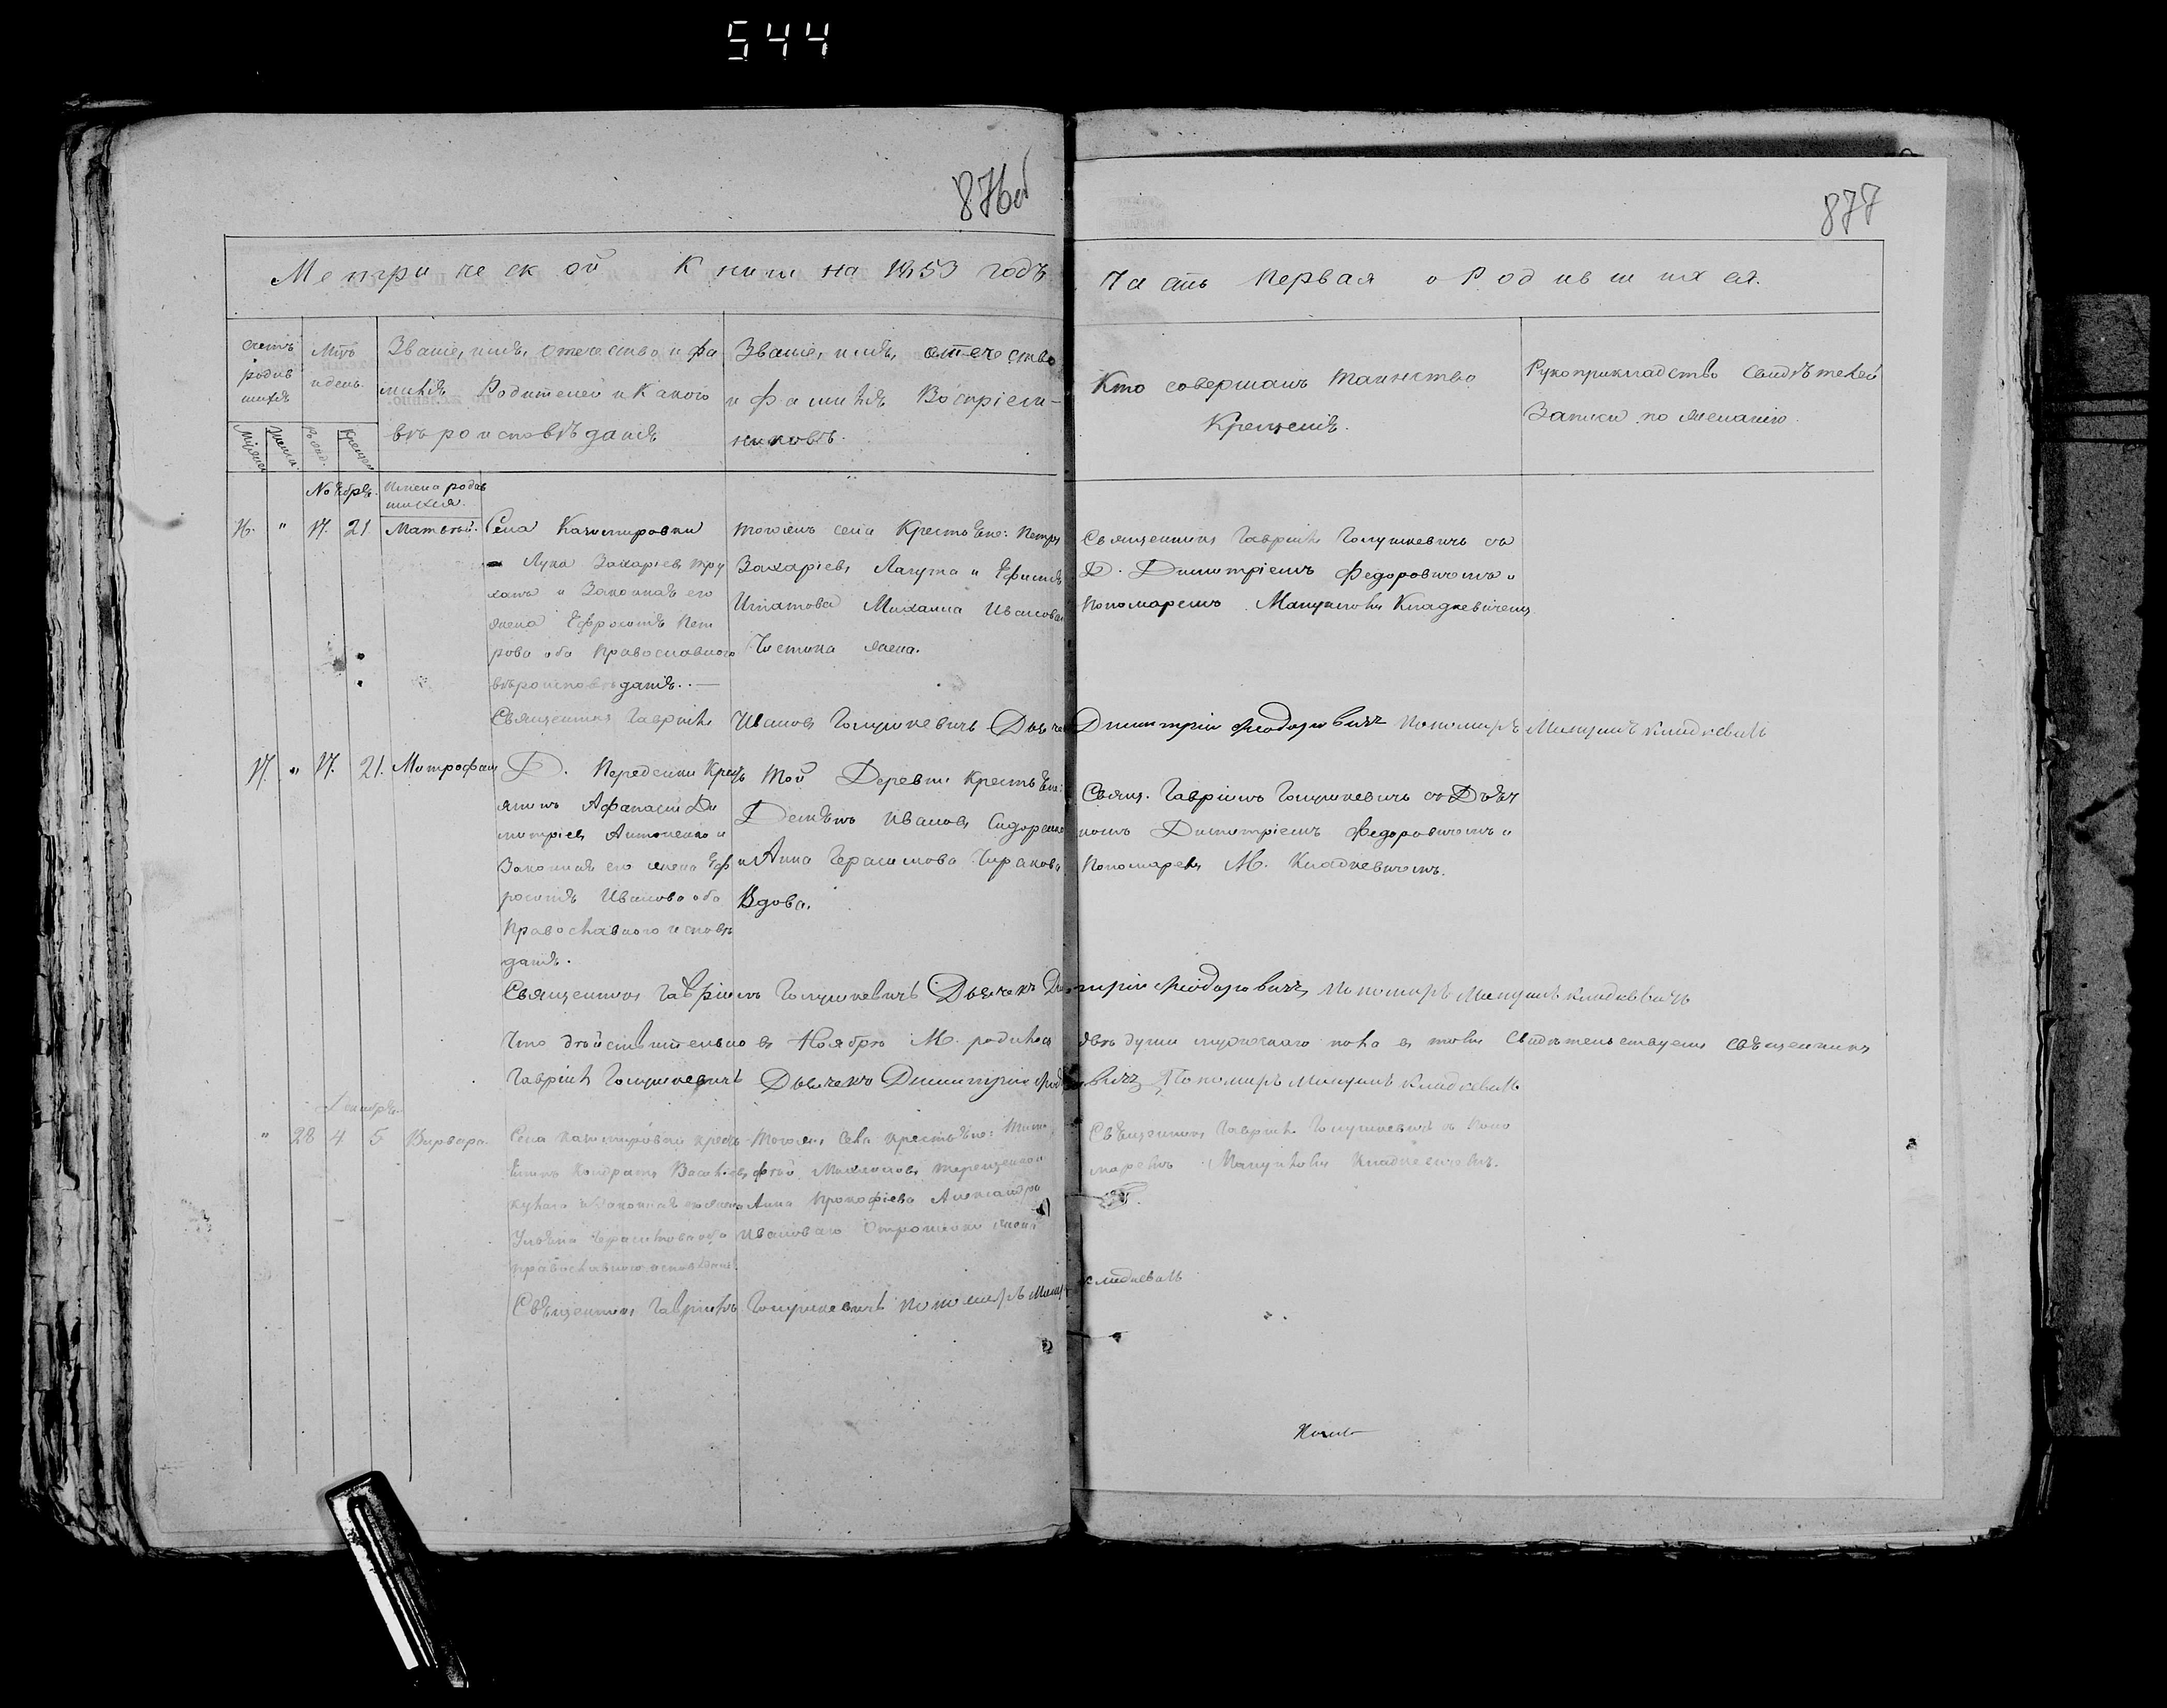 544
876об
877
Метрической Книги на 1853 годъ
Часть Первая о Родившихся.
Счетъ родив шихся
Мцъ и день.
Званіе, имя, отечество и фа
милія Родителей и Какого
вѣроисповѣданія
Званіе, имя, отечество
и фамилія Воспріем-
никовъ.
Кто совершалъ таинство
Крещенія.
Рукоприкладство Свидѣтелей
Записи по желанію.
Ноября.
Имена родив
шихся.
16. " 17. 21. Матвѣй.
Села Казимировки
Лука Захаріевъ Тру
ханъ и Законная его
жена Ефросинія Пет
рова оба православного
вѣроисповѣданія. —
тогожъ села Крестьяне: Петръ
Захаріевъ Лагута и Ефимія
Игнатова Михаила Иванова
жена.
Священникъ Гавріилъ Голушкевичъ съ
Д. Димитріемъ Федоровичемъ и
Пономаремъ Мануиломъ Кладкевичемъ
Священникъ Гавріилъ Ивановъ Голушкевичъ Дьячекъ Димитрій Феодоровичъ Пономарь Мануилъ Кладкевичъ
17. " 17. 21. Митрофанъ
Д. Переделки Крест
янинъ Афанасій Ди
митріевъ Антоненко и
Законная его жена Еф
росинія Иванова оба
Православного исповѣ
данія.
Той Деревни Крестьяне:
Демянъ Ивановъ Сидоренко
и Анна Герасимова
Вдова.
Свящ. Гавріилъ Голушкевичъ съ Дьяч
комъ Димитріемъ Федоровичемъ и
Пономаремъ М. Кладкевичемъ.
Священникъ Гавріилъ Голушкевичъ Дьячекъ Димитрій Феодоровичъ, Пономарь Мануилъ Кладкевичъ
Что дѣйствительно въ Ноябрѣ М. родилось двѣ души мужескаго пола въ томъ Свидѣтельствуемъ Священникъ
Гавріилъ Голушкевичъ Дьячекъ Димитрій Феодоровичъ Пономарь Мануилъ Кладкевичъ
Декабря.
" 28 4 5 Варвара.
Села Казимировки крест
янинъ Кондратъ Васильевъ
и Законная его жена
Ульяна Герасимова оба
православного исповѣданія.
Тогожъ села крестьяне: Тимо
фей Михайловъ Терещенко и
Анна Прокофіева Александра
Иванова жена
Священникъ Гавріилъ Голушкевичъ съ Поно
маремъ Мануиломъ Кладкевичемъ.
Священникъ Гавріилъ Голушкевичъ Пономарь Мануилъ Кладкевичъ